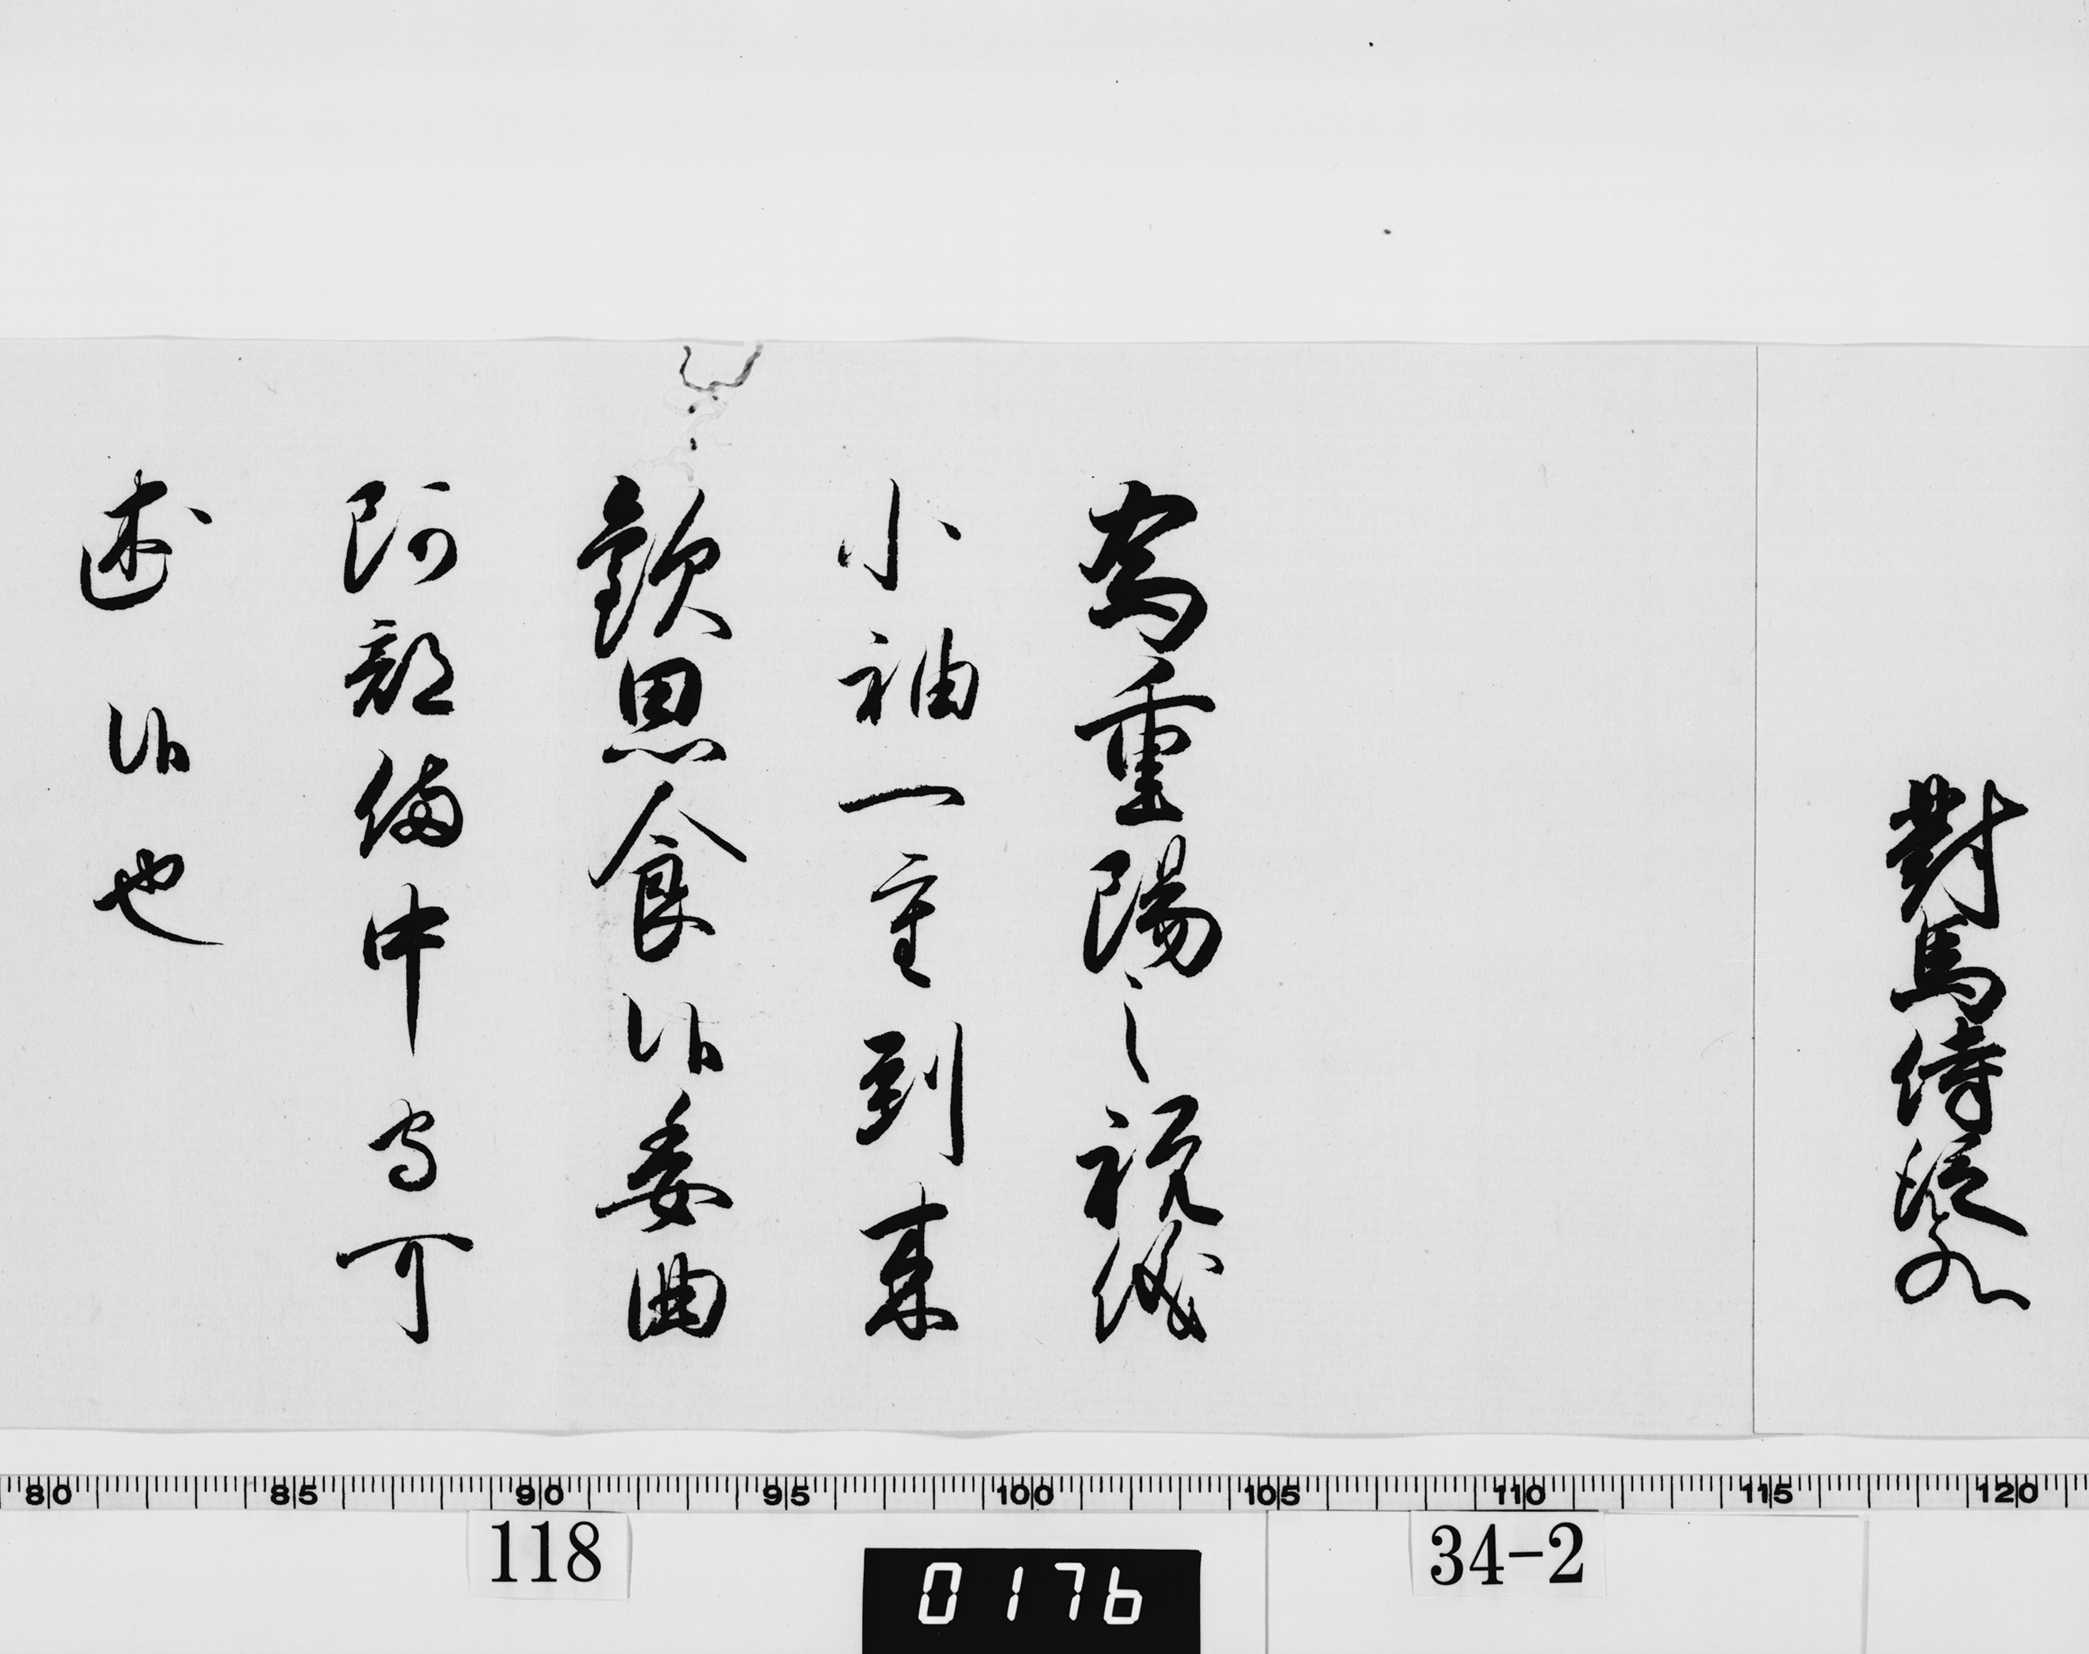 對馬侍従殿
為重陽之祝儀
小袖一重到来
歓思食候委曲
阿部備中守可
述候也
80 85 90 95 100 105 110 115 120
118
0176
34-2